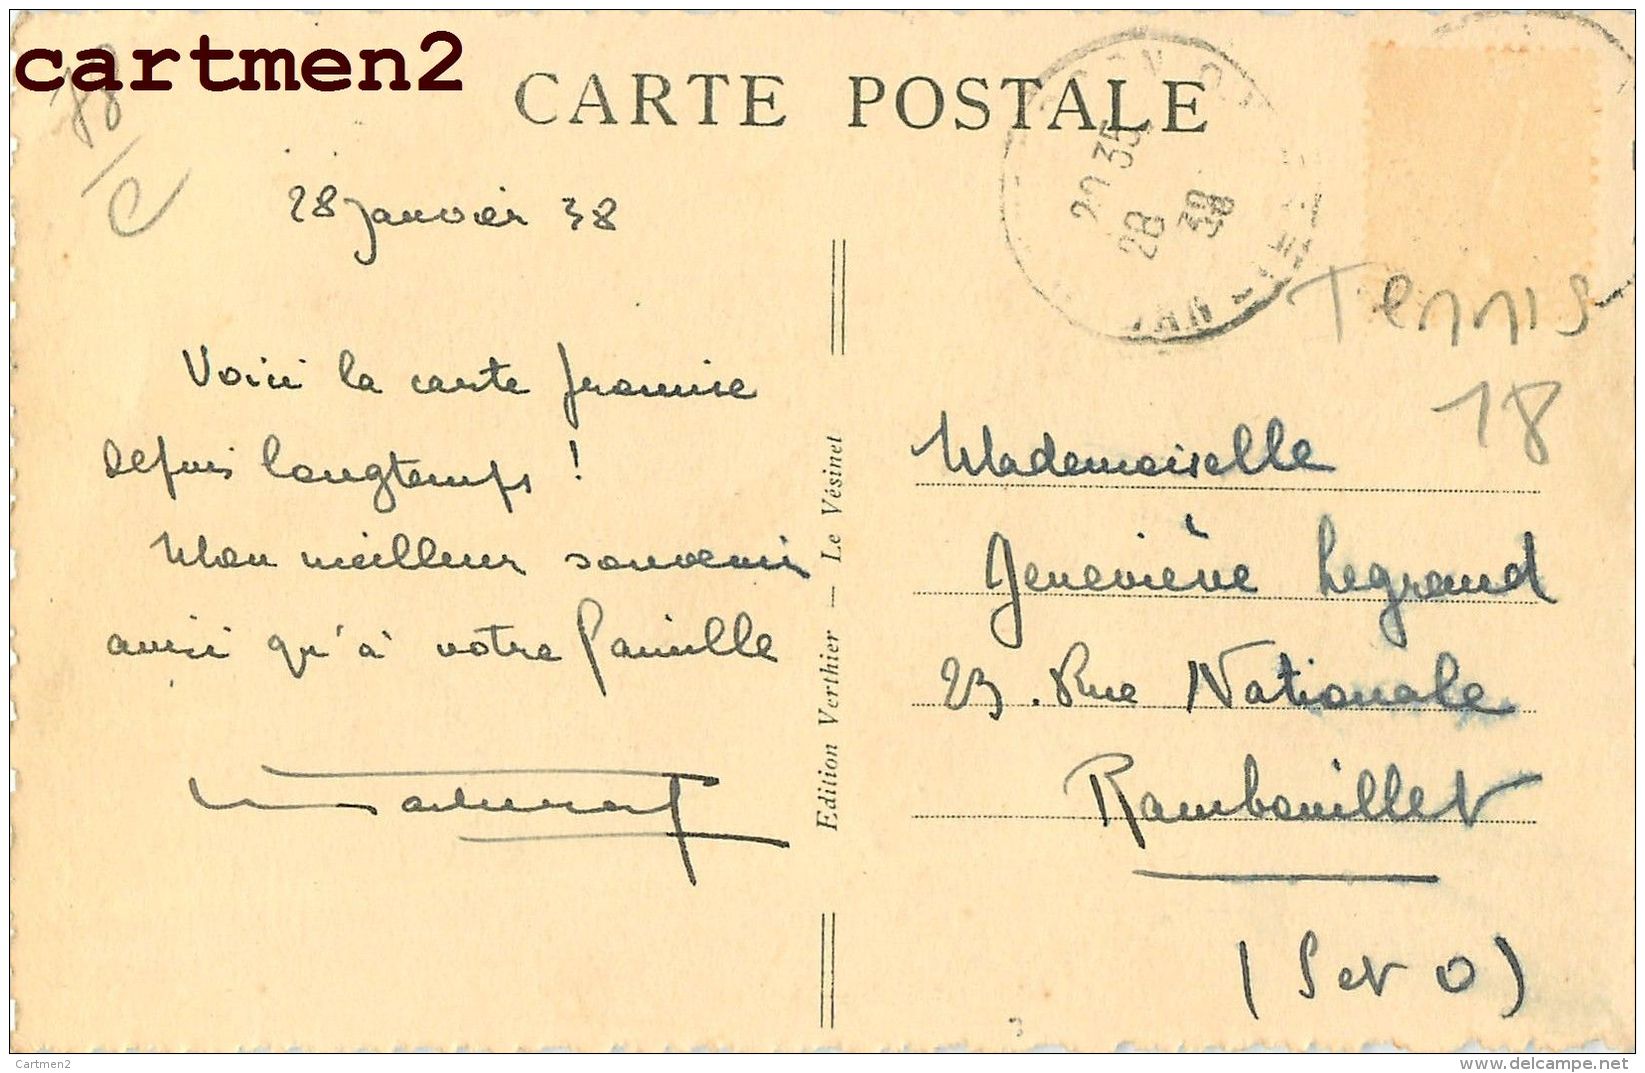 cartmen2
78
C
CARTE POSTALE
20 35
28
38
28 Janvier 38
Tennis
18
Voici la carte promise
depuis longtemps !
Mon meilleur souvenir
ainsi qu'à votre famille
Edition Verthier — Le Vésinet
Mademoiselle
Geneviève Legrand
23. Rue Nationale
Rambouillet
(S et O)
Cartmen2
www.delcampe.net